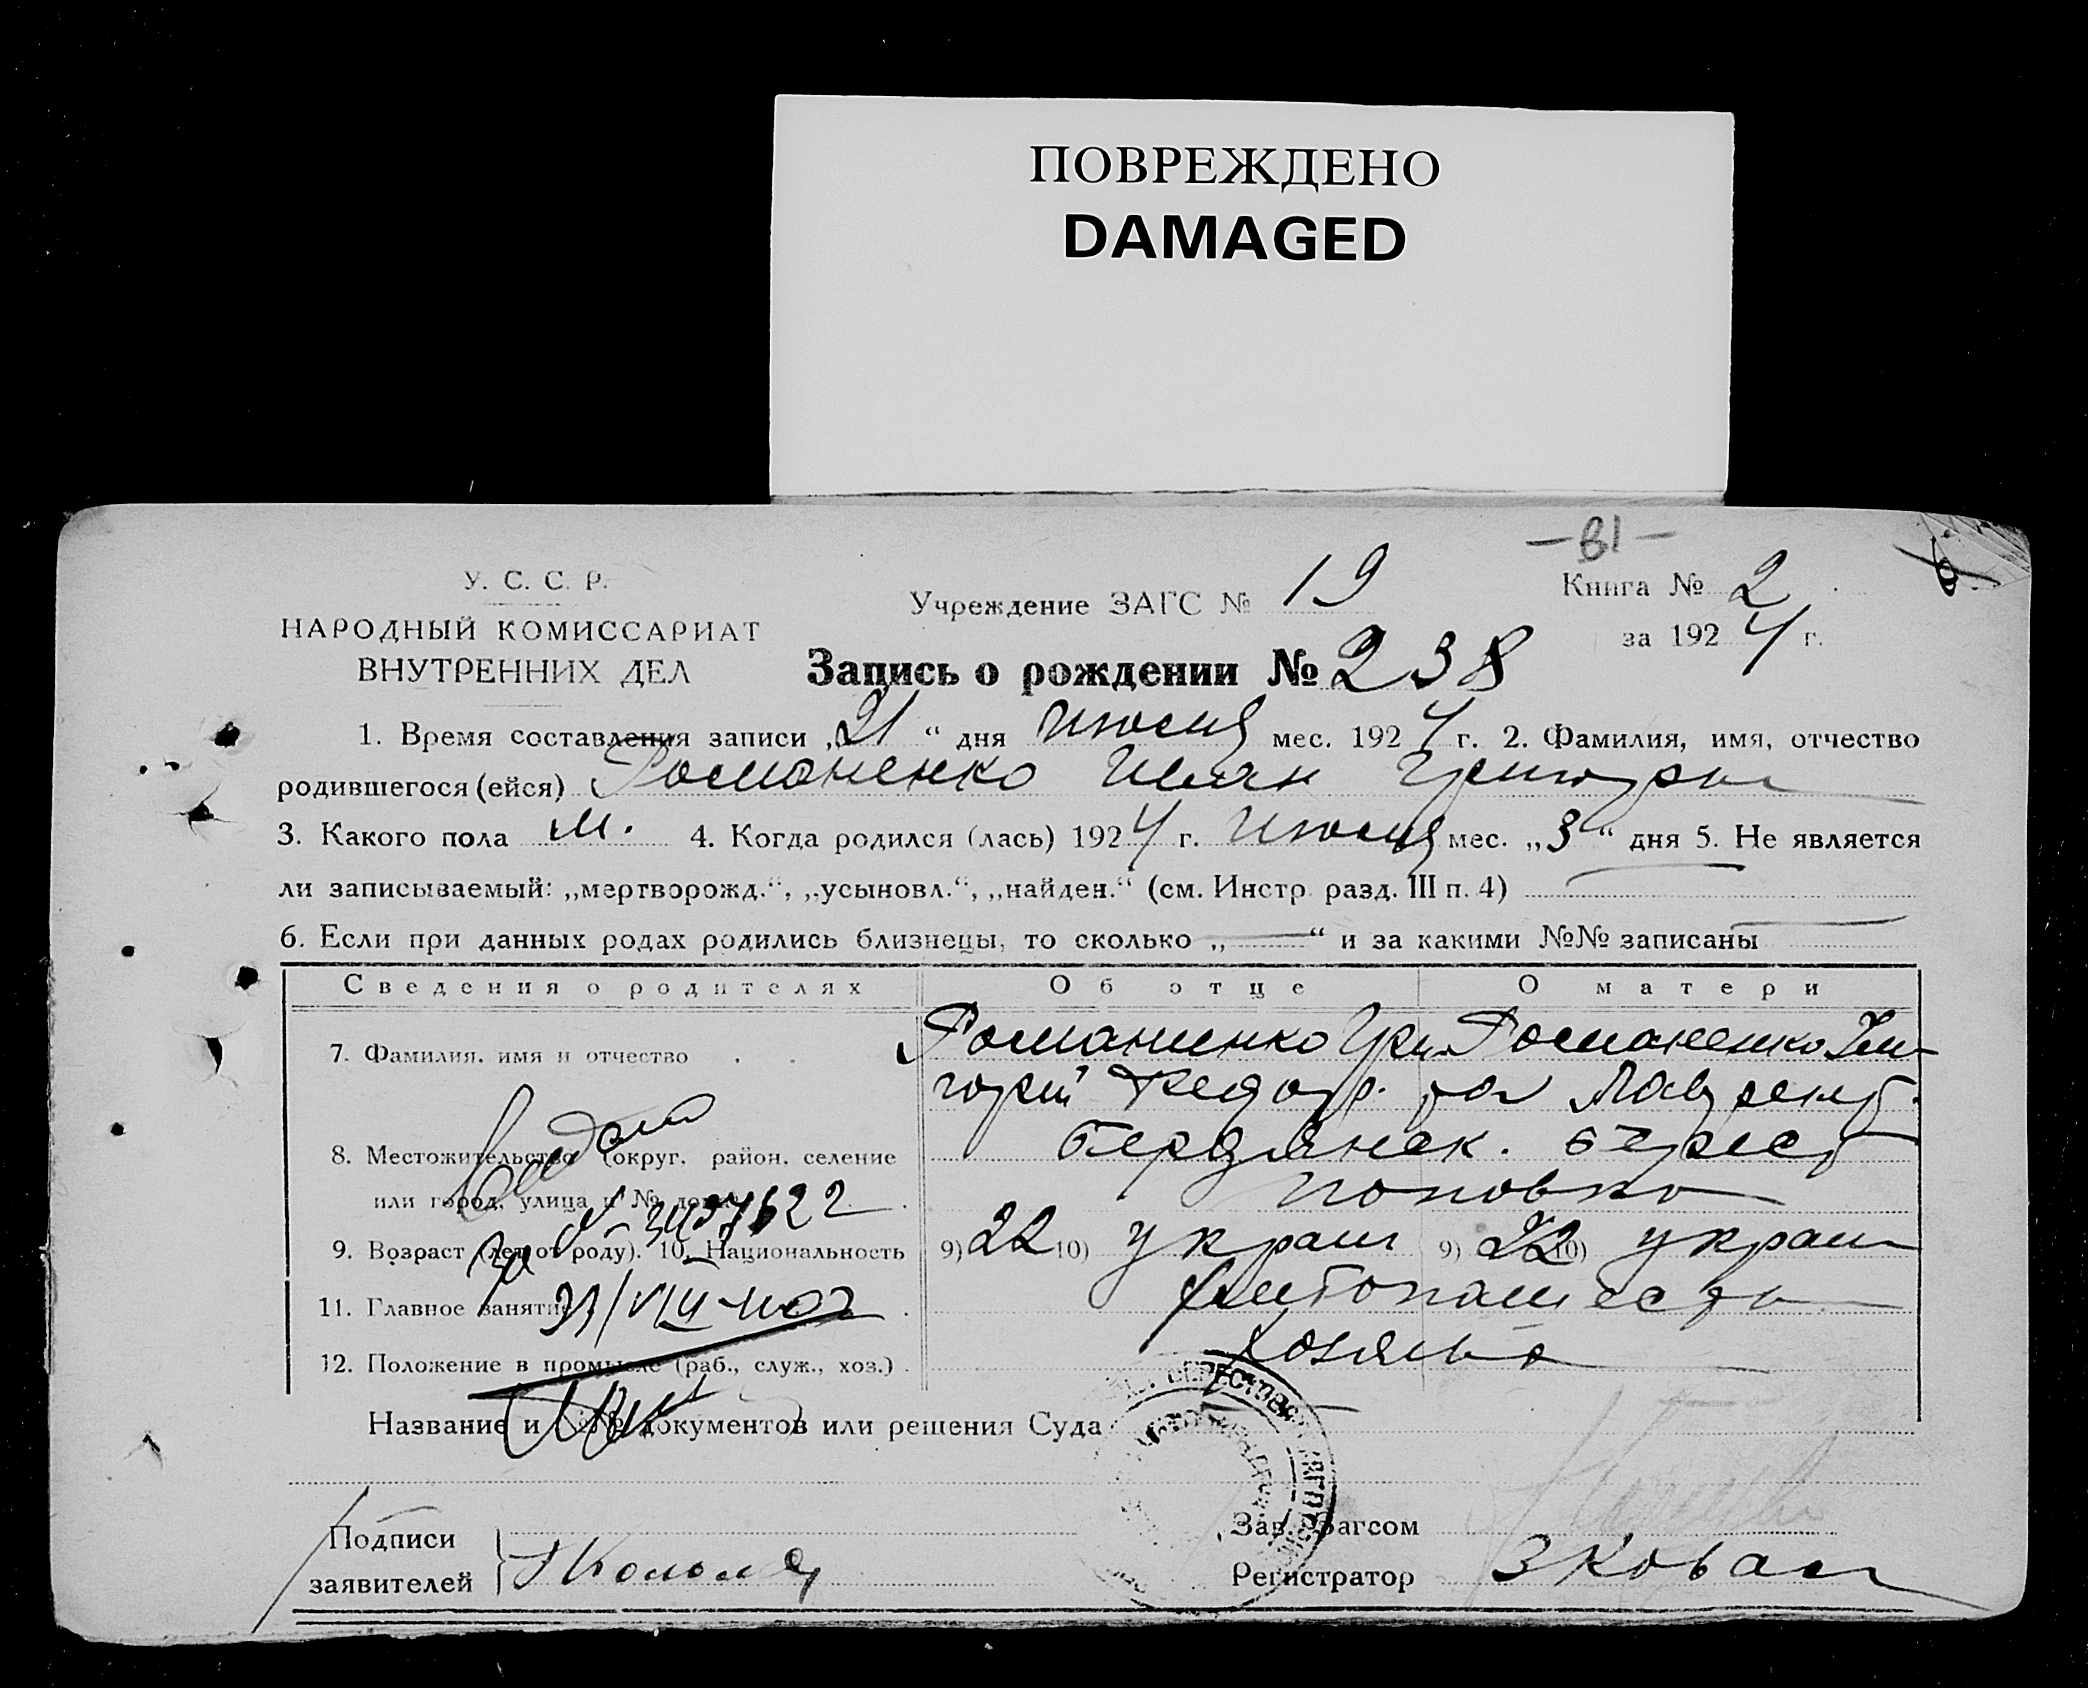 ПОВРЕЖДЕНО
DAMAGED
— 81 —
У. С. С. Р.
НАРОДНЫЙ КОМИССАРИАТ
ВНУТРЕННИХ ДЕЛ
Учреждение ЗАГС № 19
Книга № 2
за 1924 г.
Запись о рождении № 238
1. Время составления записи „21“ дня июля мес. 1924 г. 2. Фамилия, имя, отчество
родившегося (ейся) Романенко Иван Григорьев
3. Какого пола м. 4. Когда родился (лась) 1924 г. июля мес. „3“ дня 5. Не является
ли записываемый: „мертворожд.“, „усыновл.“, „найден.“ (см. Инстр. разд. III п. 4) —
6. Если при данных родах родились близнецы, то сколько „—“ и за какими №№ записаны —
Сведения о родителях Об отце О матери
7. Фамилия, имя и отчество Романенко Гри- Романенко
горий Федор.
8. Местожительство (округ, район, селение Бердянск. берест
или город, улица и № дома
9. Возраст (лет от роду). 10. Национальность 9) 22 10) украин 9) 22 10) украин
11. Главное занятие хлебопашество
12. Положение в промысле (раб., служ., хоз.)
Название и №№ документов или решения Суда
Подписи
заявителей
Зав. Загсом
Регистратор